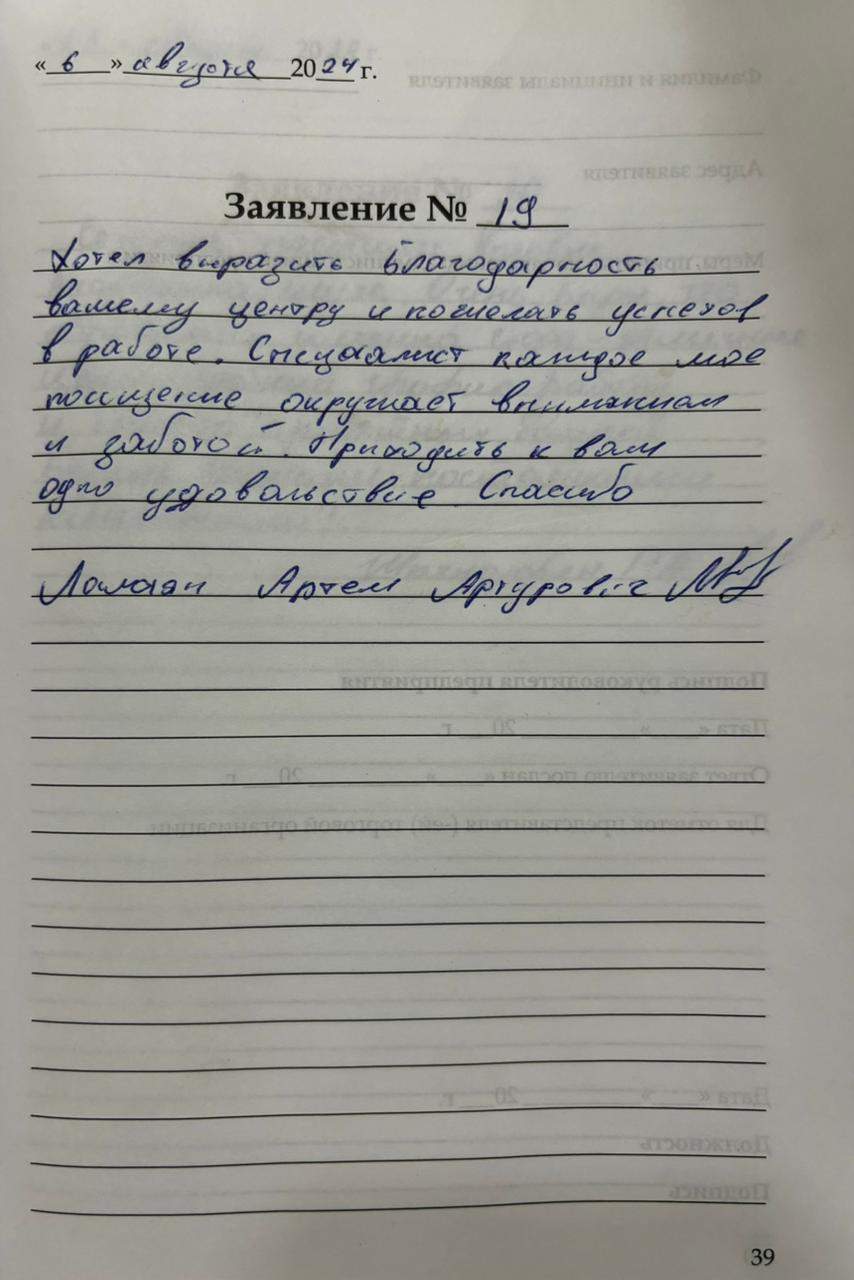 «6» августа 2024 г.
Заявление № 19
Хотел выразить Благодарность
вашему центру и пожелать успехов
в работе. Специалист каждое мое
посищение окружает вниманием
и заботой. Приходить к вам
одно удовольствие Спасибо
Артем Артурович
39